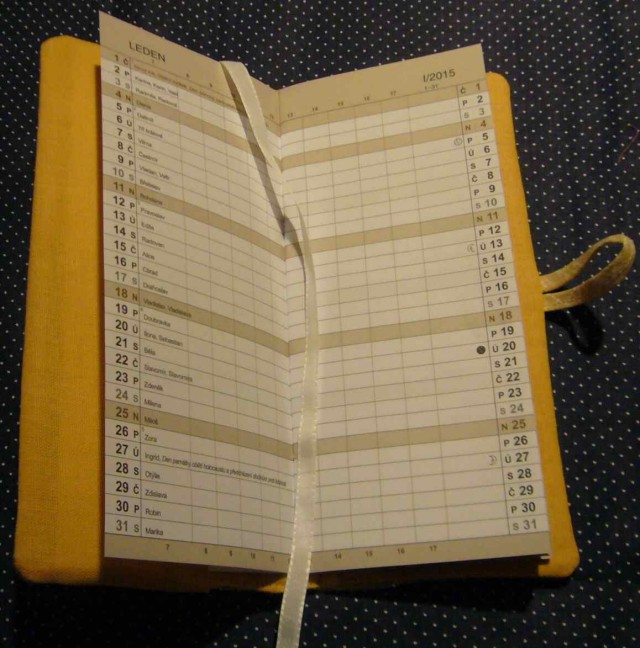 LEDEN
1 Č
2 P
3 S
4 N Dana
5 P
6 Ú Tři králové
7 S Vilma
8 Č Čestmír
9 P Vladan, Valtr
10 S Břetislav
11 N Bohdana
12 P Pravoslav
13 Ú Edita
14 S Radovan
15 Č Alice
16 P Ctirad
17 S Drahoslav
18 N Vladislav, Vladislava
19 P Doubravka
20 Ú Ilona, Sebastián
21 S Běla
22 Č Slavomír, Slavomíra
23 P Zdeněk
24 S Milena
25 N Miloš
26 P Zora
27 Ú Ingrid, Den památky obětí holocaustu a předcházení zločinům proti lidskosti
28 S Otýlie
29 Č Zdislava
30 P Robin
31 S Marika
7 8 9 10 11
I/2015
1-31
13 14 15 16 17
Č 1
P 2
S 3
N 4
P 5
Ú 6
S 7
Č 8
P 9
S 10
N 11
P 12
Ú 13
S 14
Č 15
P 16
S 17
N 18
P 19
Ú 20
S 21
Č 22
P 23
S 24
N 25
P 26
Ú 27
S 28
Č 29
P 30
S 31
14 15 16 17